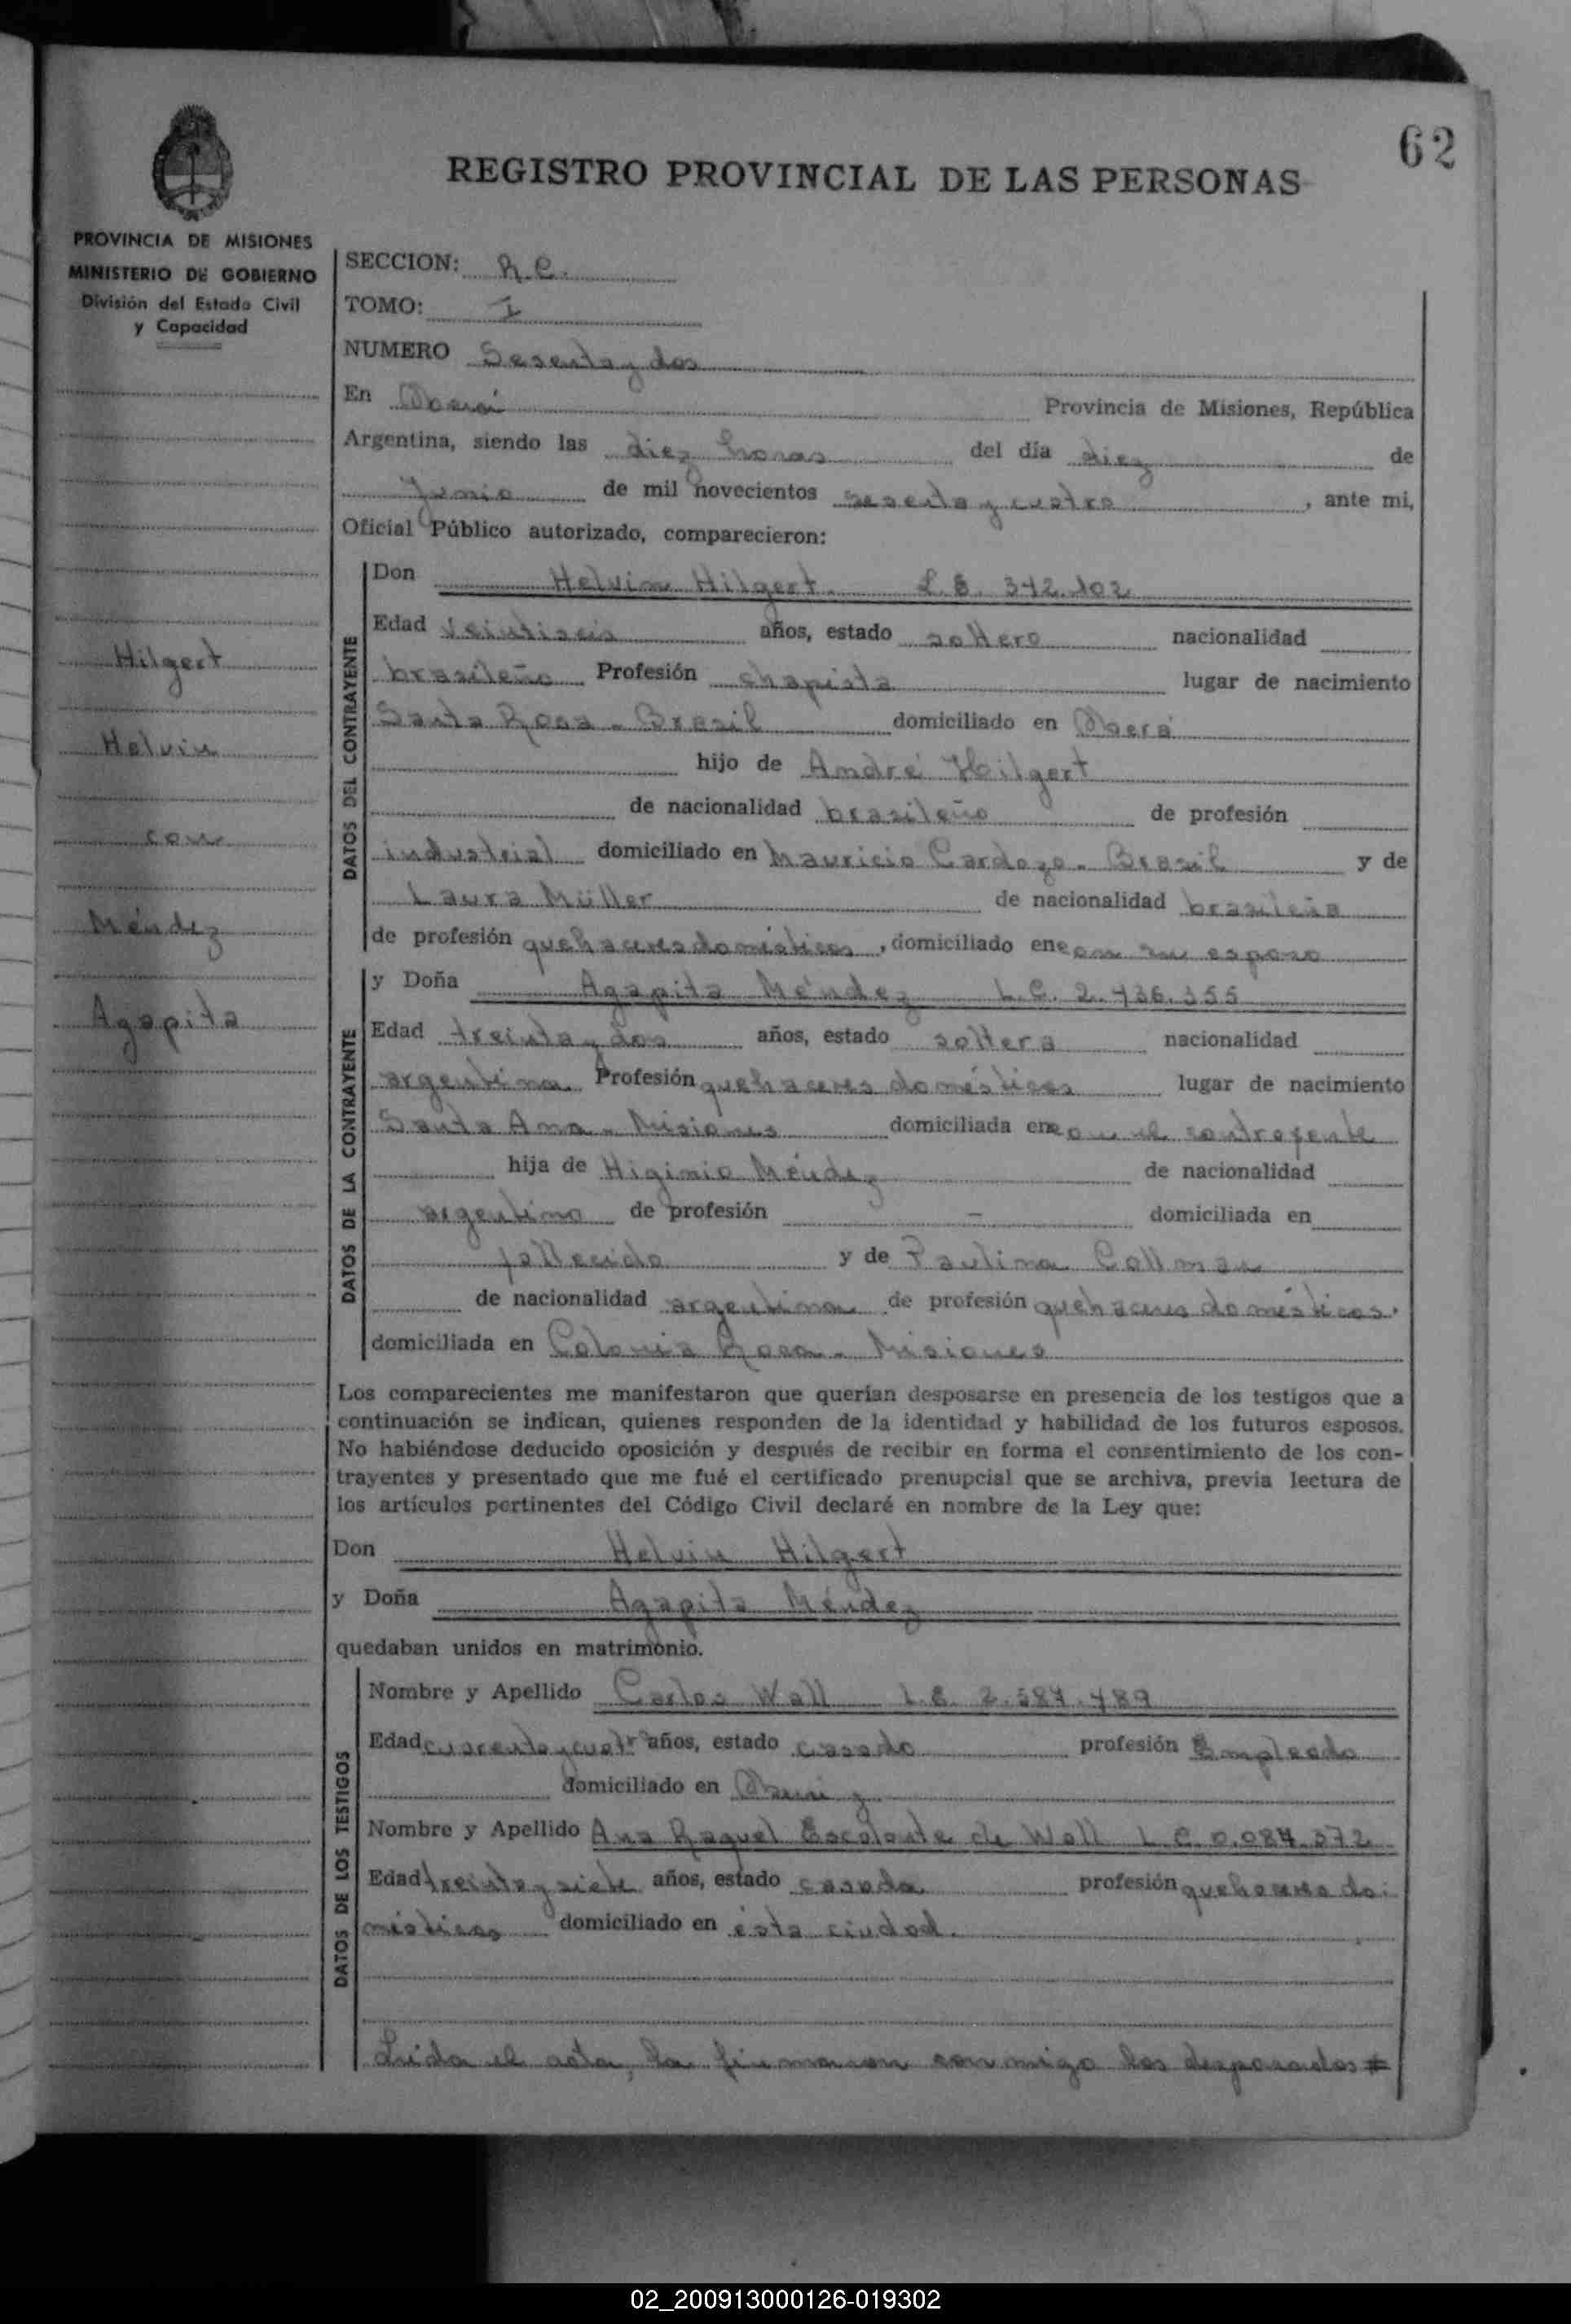 62
REGISTRO PROVINCIAL DE LAS PERSONAS
PROVINCIA DE MISIONES
MINISTERIO DE GOBIERNO
División del Estado Civil
y Capacidad
Hilgert
Helvin
con
Méndez
Agapita
SECCION: R.C.
TOMO: I
NUMERO Sesenta y dos
En Oberá Provincia de Misiones, República
Argentina, siendo las diez horas del día diez de
Junio de mil novecientos sesenta y cuatro, ante mi,
Oficial Público autorizado, comparecieron:
DATOS DEL CONTRAYENTE
Don Helvin Hilgert. L.E. 342.102
Edad veintiseis años, estado soltero nacionalidad
brasileño Profesión chapista lugar de nacimiento
Santa Rosa - Brasil domiciliado en Oberá
hijo de André Hilgert
de nacionalidad brasileño de profesión
industrial domiciliado en Mauricio Cardozo - Brasil y de
Laura Müller de nacionalidad brasileña
de profesión quehaceres domésticos, domiciliado en con su esposo
DATOS DE LA CONTRAYENTE
y Doña Agapita Méndez L.C. 2.436.355
Edad treinta y dos años, estado soltera nacionalidad
argentina. Profesión quehaceres domésticos lugar de nacimiento
Santa Ana - Misiones domiciliada en con el contrayente
hija de Higinio Méndez de nacionalidad
argentino de profesión - domiciliada en
fallecido y de Paulina Collman
de nacionalidad argentina de profesión quehaceres domésticos.
domiciliada en Colonia Roca - Misiones
Los comparecientes me manifestaron que querían desposarse en presencia de los testigos que a
continuación se indican, quienes responden de la identidad y habilidad de los futuros esposos.
No habiéndose deducido oposición y después de recibir en forma el consentimiento de los con-
trayentes y presentado que me fué el certificado prenupcial que se archiva, previa lectura de
los artículos pertinentes del Código Civil declaré en nombre de la Ley que:
Don Helvin Hilgert
y Doña Agapita Méndez
quedaban unidos en matrimonio.
DATOS DE LOS TESTIGOS
Nombre y Apellido Carlos Wall L.E. 2.587.489
Edad cuarenta y cuatro años, estado casado profesión Empleado
domiciliado en
Nombre y Apellido Ana Raquel Escalante de Wall L.C. 0.084.372
Edad treinta y siete años, estado casada profesión quehaceres do-
mésticos domiciliado en ésta ciudad.
Leida el acta, la firmaron conmigo los desposados #
02_200913000126-019302